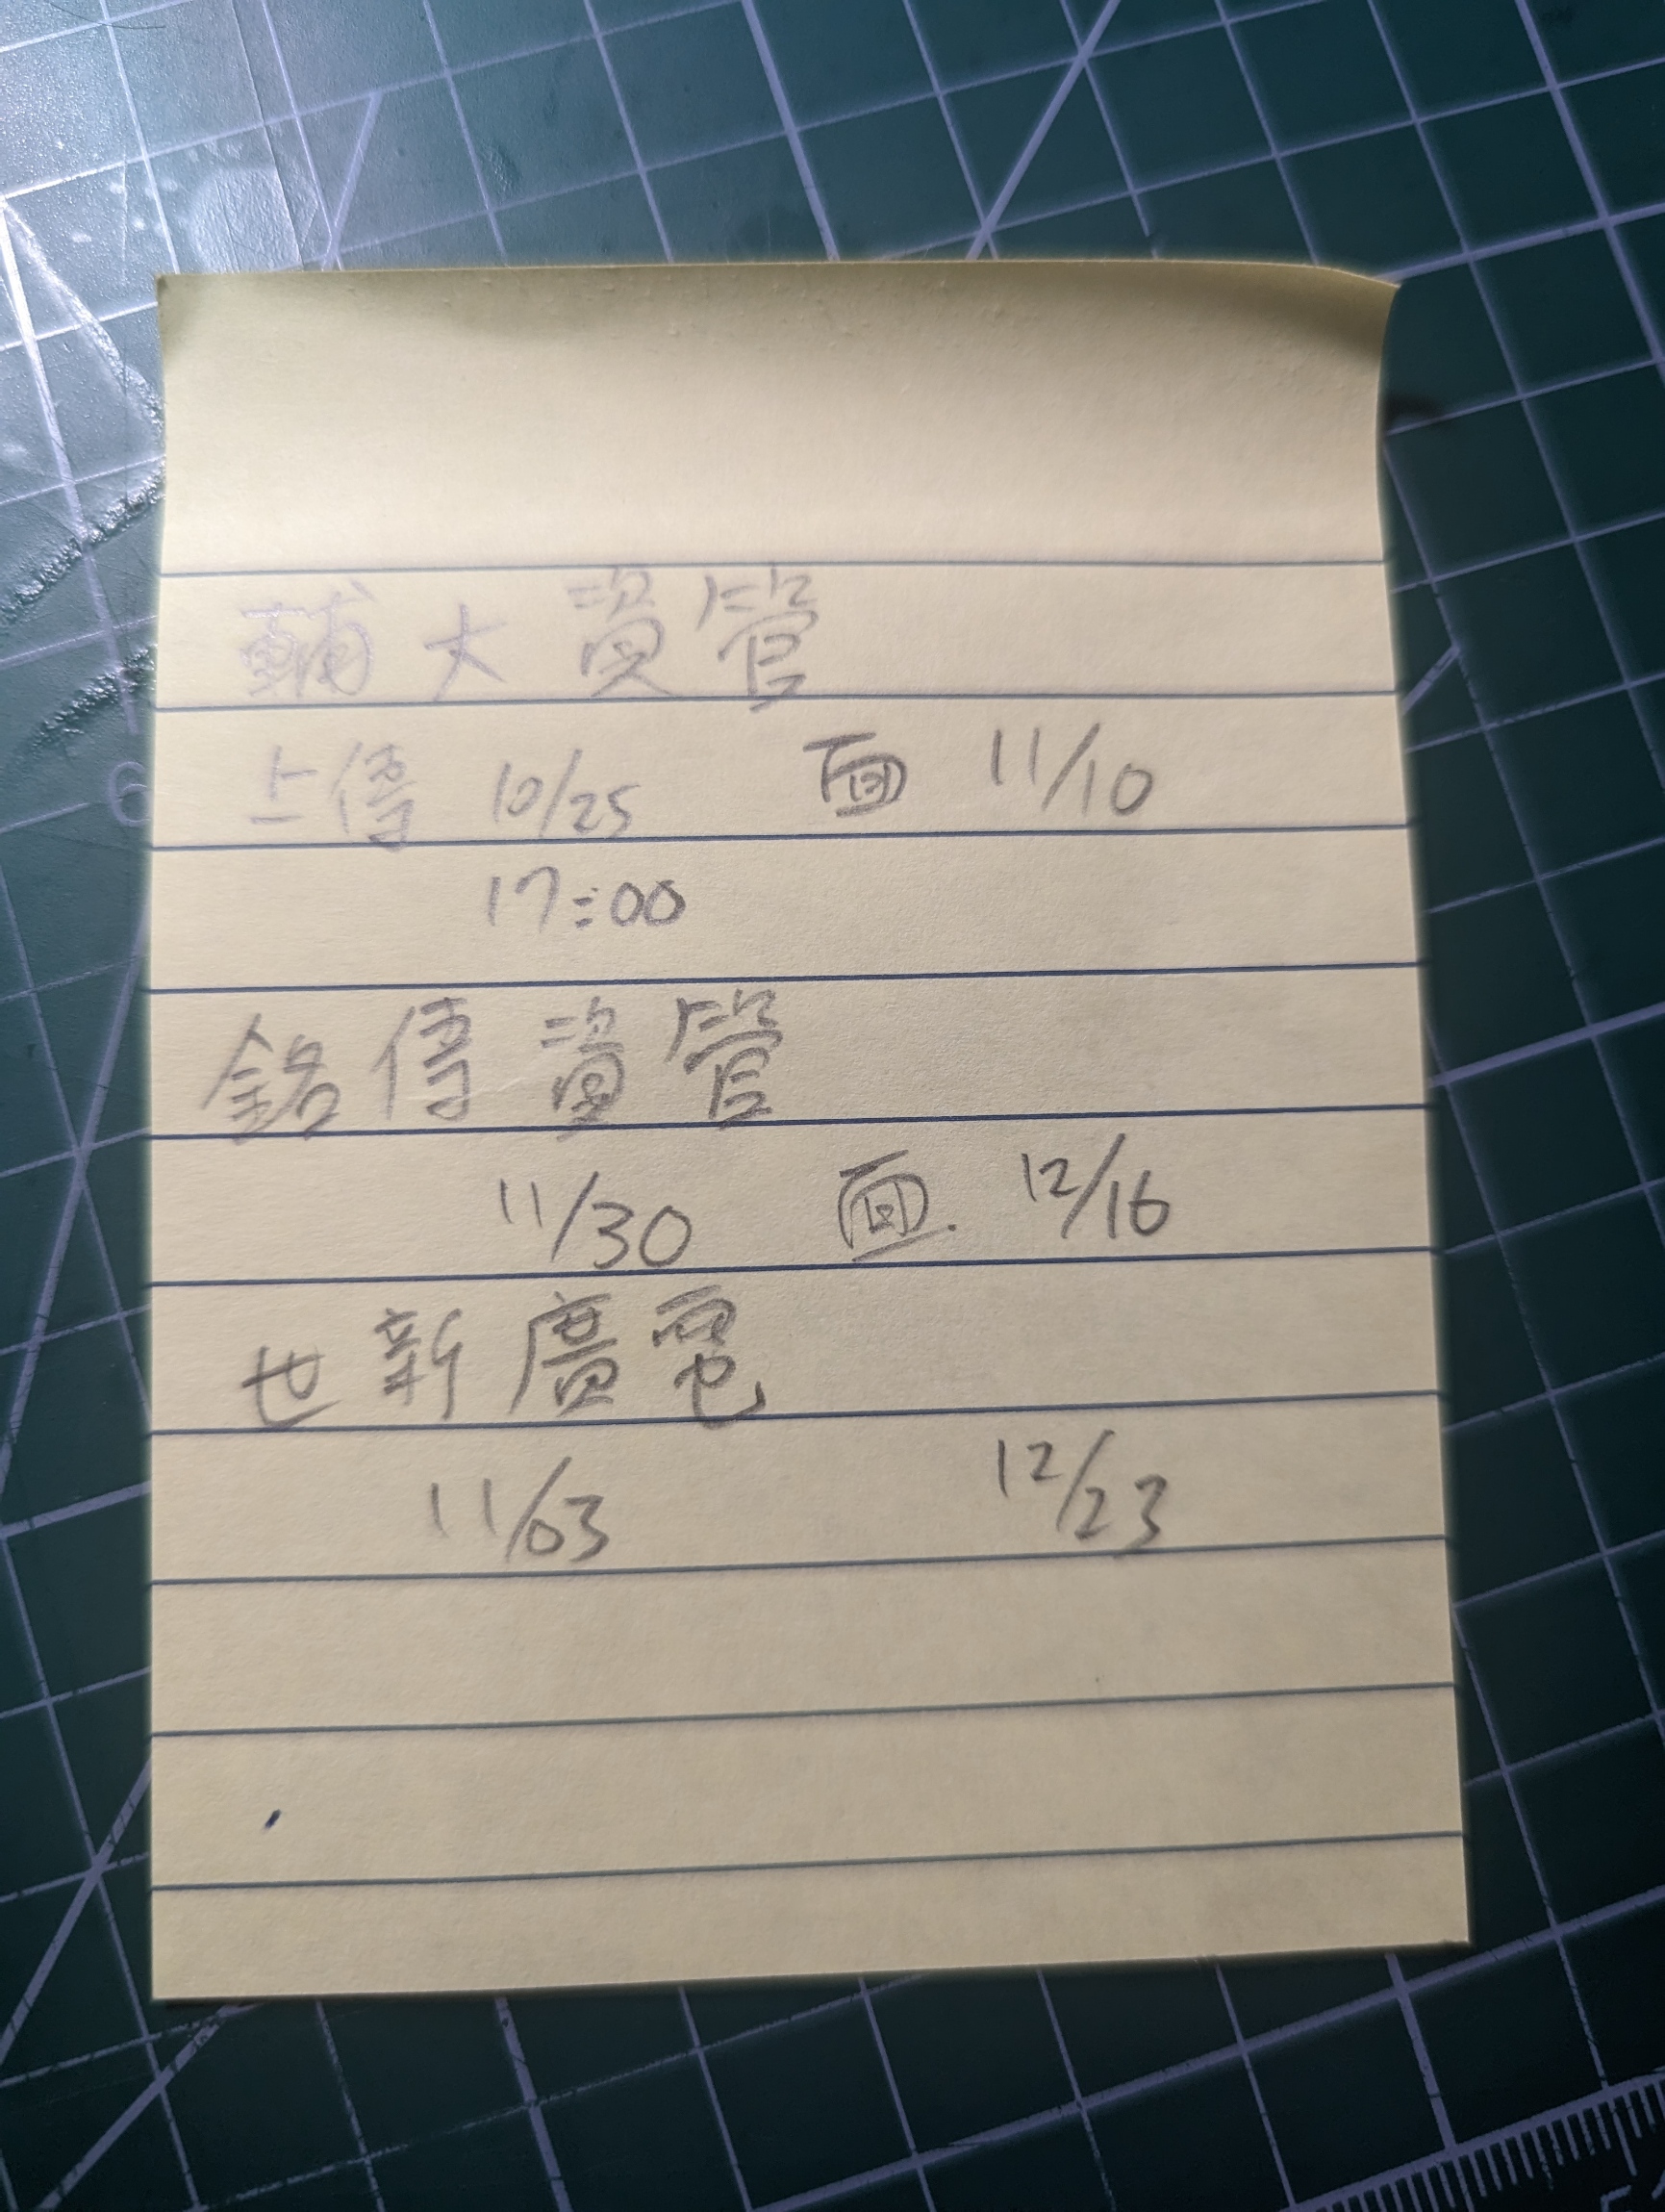 輔大資管
上傳 10/25 面 11/10
17:00
銘傳資管
11/30 面. 12/16
世新廣電
11/03 12/23
6